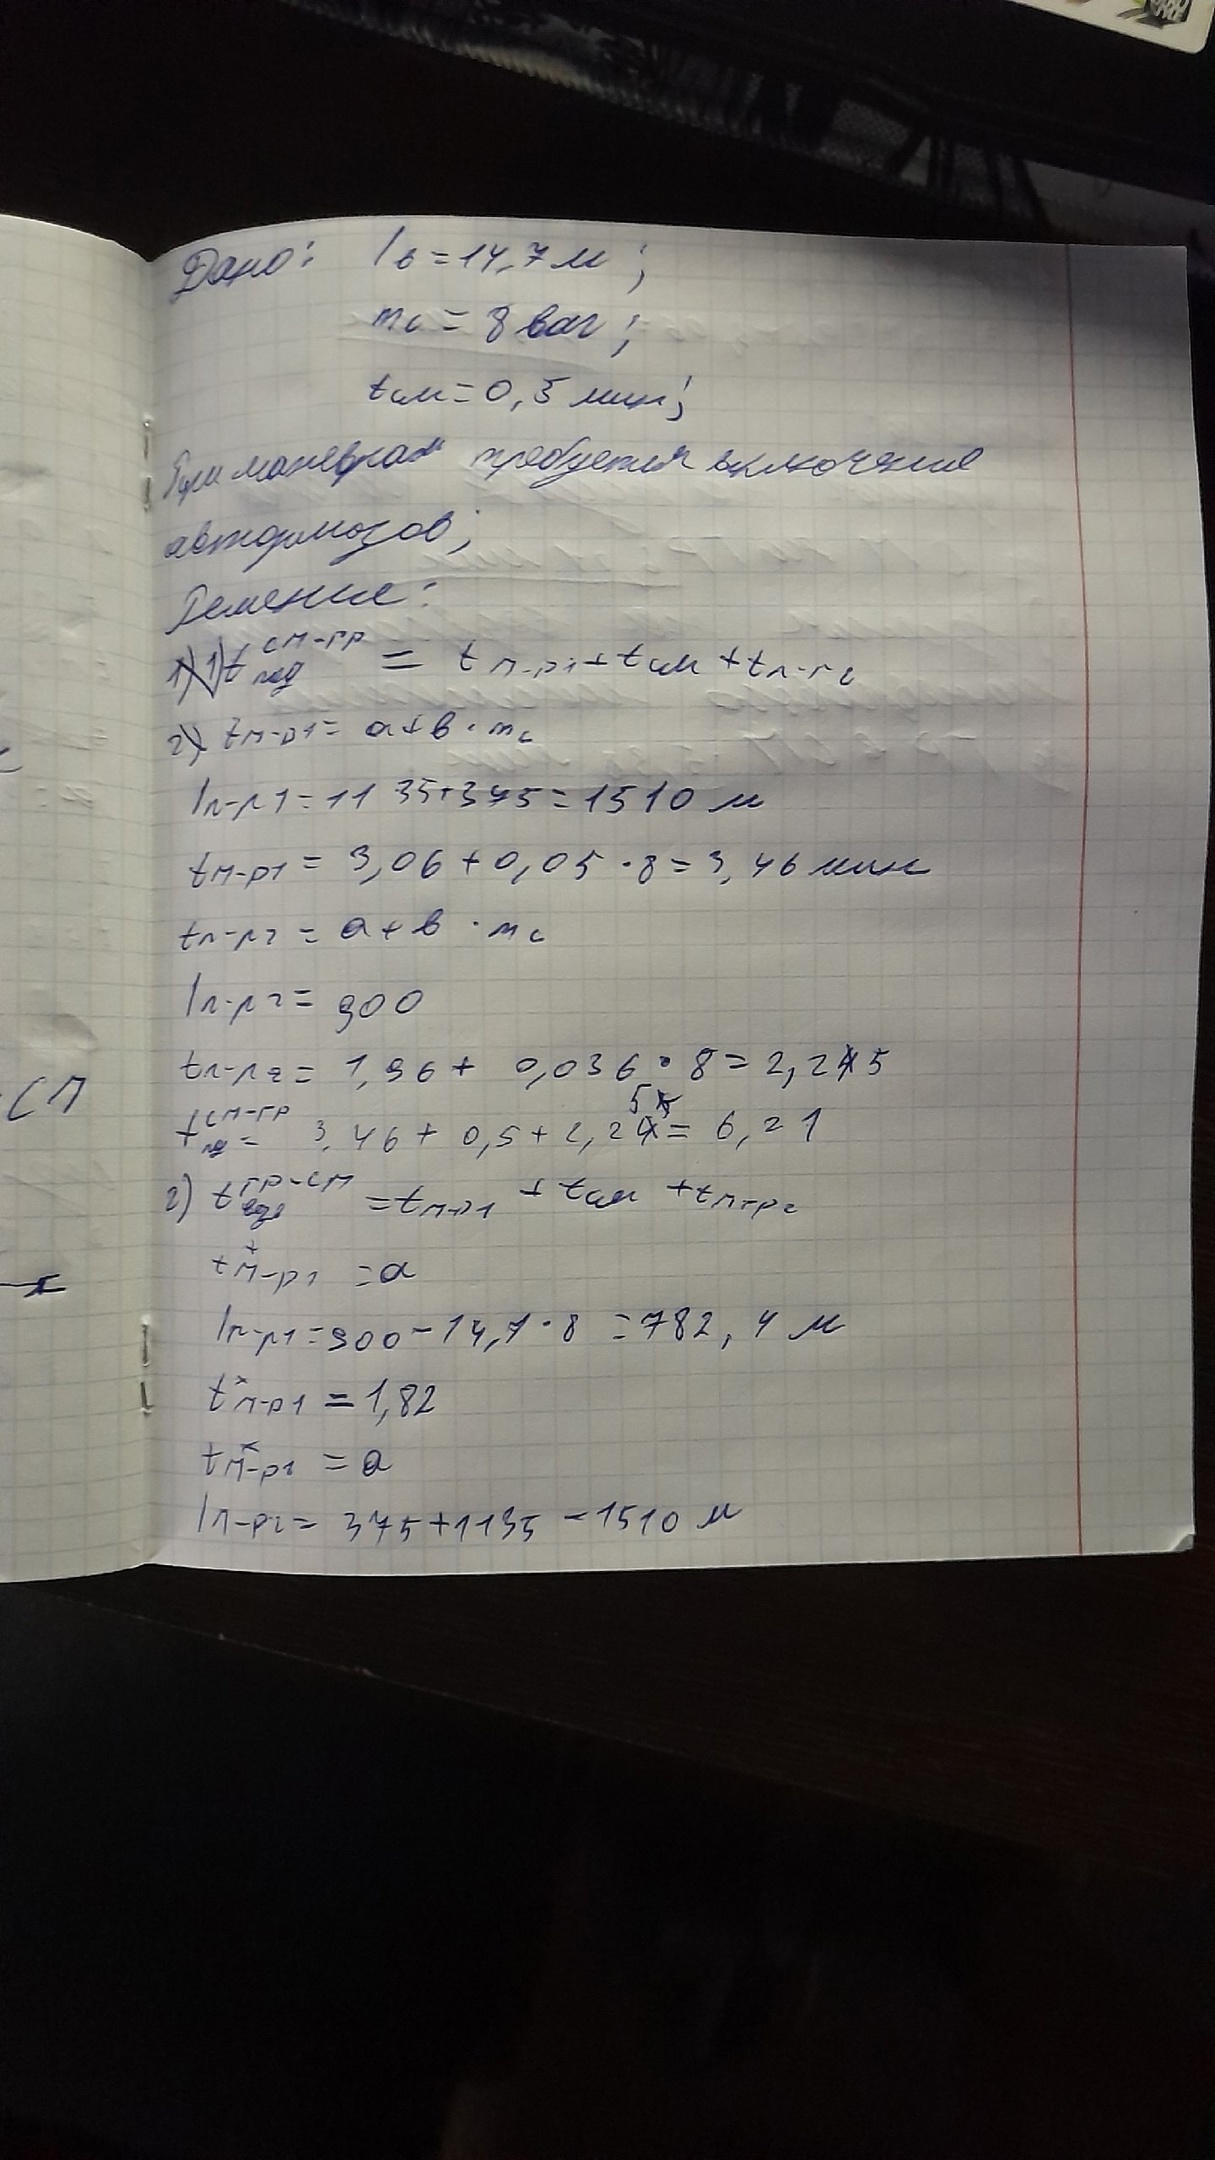 Дано: lв = 14,7 м;
mс = 8 ваг;
tсм = 0,5 мин;
При маневрах требуется включение
автотормозов;
Решение:
1) 1) t под см-гр = tп-р1 + tсм + tп-р2
2) tп-р1 = а+в · mс
lп-р1 = 1135+375 = 1510 м
tп-р1 = 3,06 + 0,05 · 8 = 3,46 мин
tп-р2 = а+в · mс
lп-р2 = 900
tп-р2 = 1,96 + 0,036 · 8 = 2,25
t под см-гр = 3,46 + 0,5 + 2,25 = 6,21
2) t гр-см = tп-р1 + tсм + tп-р2
tп-р1 = а
lп-р1 = 900 - 14,7 · 8 = 782,4 м
tп-р1 = 1,82
tп-р2 = а
lп-р2 = 375+1135 = 1510 м
СП